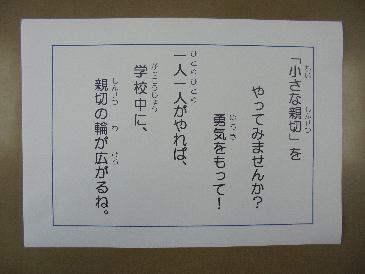 「小さな親切」を
やってみませんか?
勇気をもって!
一人一人がやれば、
学校中に、
親切の輪が広がるね。